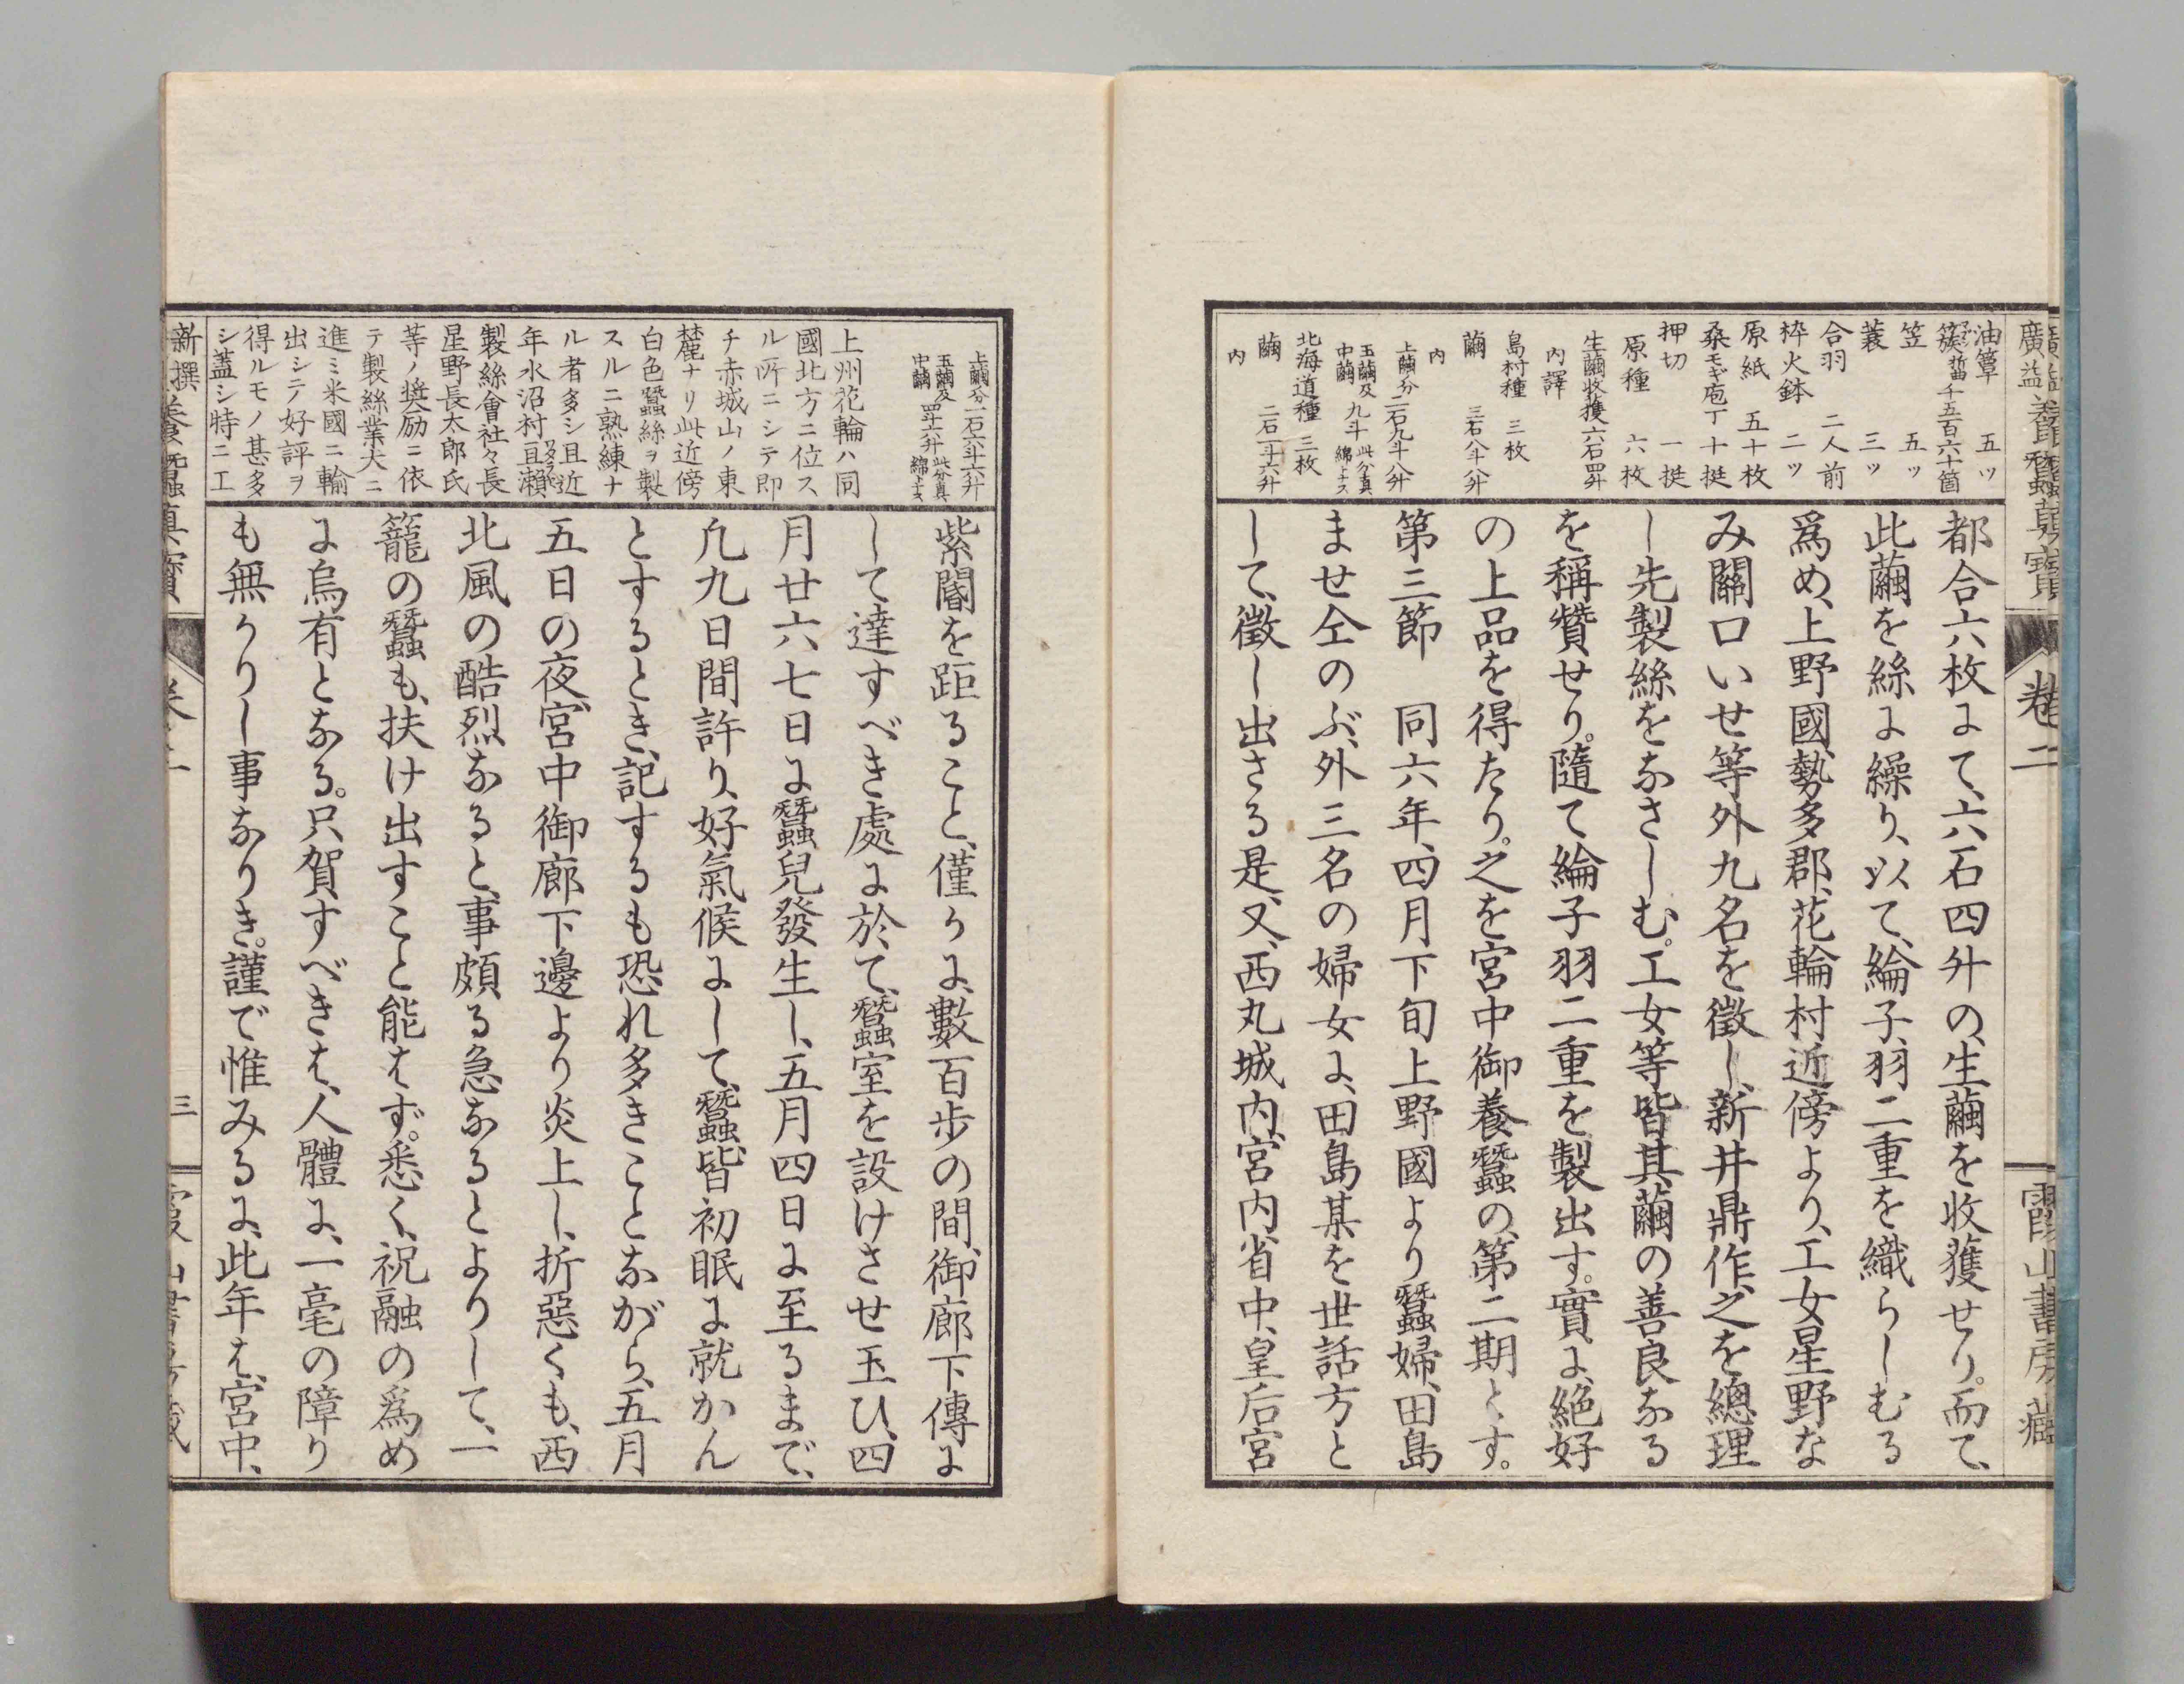 卷二
油單 五ツ
簇 千五百六十箇
笠 五ツ
蓑 三ツ
合羽 二人前
枠火鉢 二ツ
原紙 五十枚
桑モギ庖丁 十挺
押切 一挺
原種 六枚
生繭收獲六石四升
内譯
島村種 三枚
繭 三石八斗八升
内
上繭分 二石九斗八升
玉繭及中繭 九斗 此分真綿トナス
北海道種 三枚
繭 二石一斗六升
内
都合六枚にて、六石四升の、生繭を收獲せり。而て、
此繭を絲に繰り、以て、綸子、羽二重を織らしむる
爲め、上野國、勢多郡、花輪村近傍より、工女星野な
み關口いせ等外九名を徵し、新井鼎作、之を總理
し先製絲をなさしむ。工女等皆其繭の善良なる
を稱贊せり。隨て綸子羽二重を製出す。實に、絶好
の上品を得たり。之を宮中御養蠶の、第二期とす。
第三節 同六年、四月下旬上野國より蠶婦、田島
ませ仝のぶ、外三名の婦女に、田島某を世話方と
して、徵し出さる是、又、西丸城内、宮内省中、皇后宮
上繭分 一石六斗六升
玉繭及中繭 此分真綿トナス
上州花輪ハ同
國北方ニ位ス
ル所ニシテ即
チ赤城山ノ東
麓ナリ此近傍
白色蠶絲ヲ製
スルニ熟練ナ
ル者多シ且近
年水沼村亘瀨
製絲會社々長
星野長太郎氏
等ノ奬励ニ依
テ製絲業大ニ
進ミ米國ニ輸
出シテ好評ヲ
得ルモノ甚多
シ蓋シ特ニ工
紫闇を距ること、僅かに、數百歩の間、御廊下傳に
して達すべき處に於て、蠶室を設けさせ玉ひ、四
月廿六七日に蠶兒發生し、五月四日に至るまで、
凡九日間許り、好氣候にして、蠶、皆初眠に就かん
とするとき、記するも恐れ多きことながら、五月
五日の夜、宮中御廊下邊より炎上し、折惡くも、西
北風の酷烈なると、事頗る急なるとよりして、一
籠の蠶も、扶け出すこと能はず。悉く、祝融の爲め
に烏有となる。只賀すべきは、人體に、一毫の障り
も無かりし事なりき。謹で惟みるに、此年は、宮中、
三